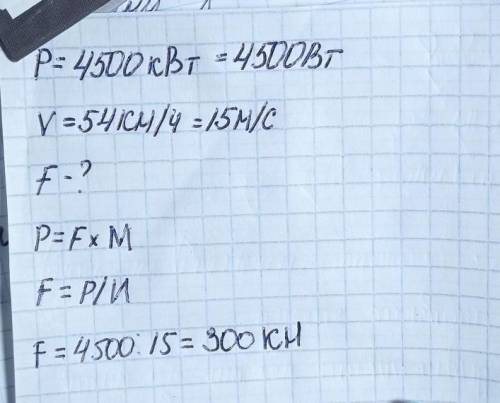 P = 4500 кВт = 4500Вт
V = 54 км/ч = 15 м/с
F - ?
P = F x М
F = P/И
F = 4500 : 15 = 300 КН